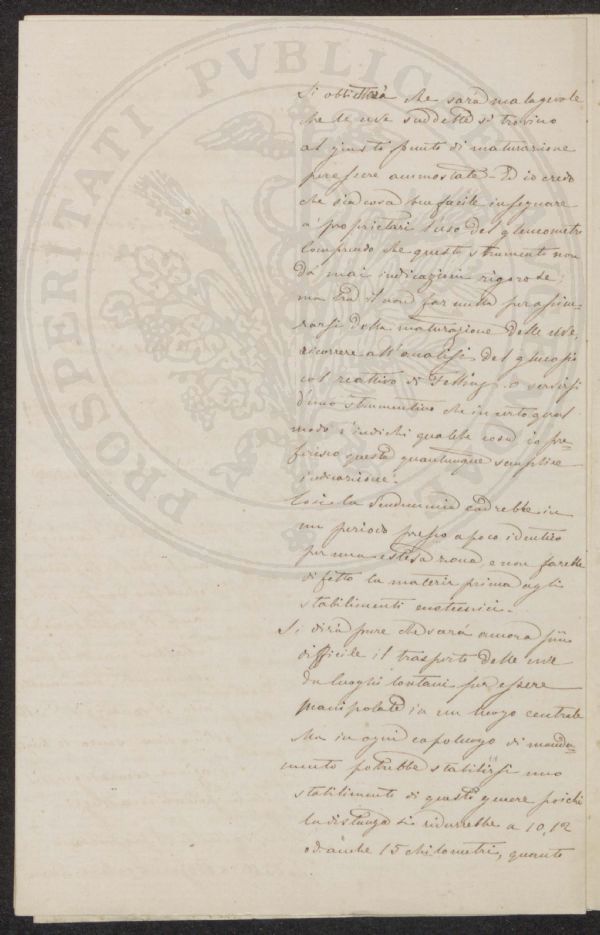 Si obbietterà che sarà malagevole
che le uve suddette si trovino
al giusto punto di maturazione
per essere ammostate. Ed io credo
che sia cosa ben facile insegnare
a' proprietari l'uso del glucometro
Comprendo che questo strumento non
dà mai indicazioni rigorose;
ma tra il non far nulla per assicu-
rarsi della maturazione delle uve,
ricorrere all'analisi del glucosio
col reattivo di Felling o servirsi
d'uno strumentino che in certo qual
modo c'indichi qualche cosa io pre-
ferisco questa quantunque semplice
indicazione.
Così la vendemmia cadrebbe in
un periodo presso a poco identico
per una estesa zona, e non farebbe
difetto la materia prima agli
stabilimenti enotecnici.
Si dirà pure che sarà ancora più
difficile il trasporto delle uve
da luoghi lontani per essere
manipolate in un luogo centrale
Ma in ogni capoluogo di manda-
mento potrebbe stabilirsi uno
stabilimento di questo genere poichè
la distanza si ridurrebbe a 10, 12
od anche 15 chilometri, quante
PROSPERITATI PVBLICAE